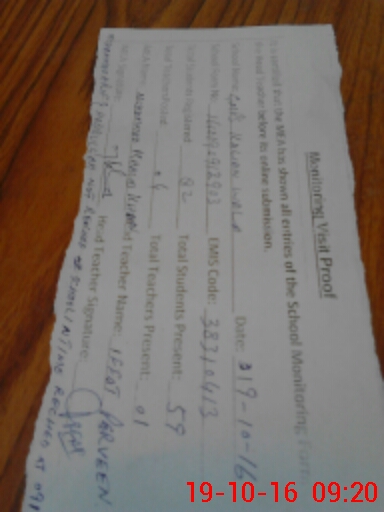 Monitoring Visit Proof
It is certified that the MEA has shown all entries of the School Monitoring Form
the Head Teacher before its online submission.
School Name: GGPS KALIEN WALA Date: 19-10-16
School Form No. EMIS Code: 38310413
Total Students Registered: 82 Total Students Present: 59
Total Teachers Posted: 4 Total Teachers Present: 01
MEA Name: Head Teacher Name: IFFAT PARVEEN
MEA Signature: Head Teacher Signature:
NOT REACHED SCHOOL IN TIME REACHED AT
19-10-16 09:20